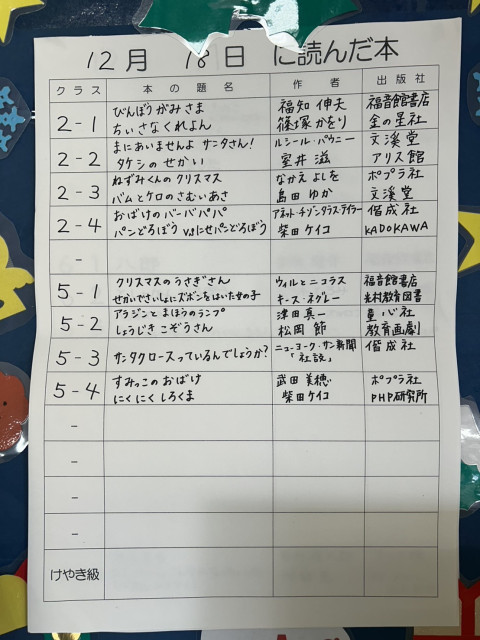 12月 18日 に読んだ本
クラス 本の題名 作者 出版社
2-1 びんぼうがみさま 福知伸夫 福音館書店
ちいさなくれよん 篠塚かをり 金の星社
2-2 まにあいませんよ サンタさん! ルシール・パウニー 文溪堂
タケシのせかい 室井滋 アリス館
2-3 ねずみくんのクリスマス なかえよしを ポプラ社
バムとケロのさむいあさ 島田ゆか 文溪堂
2-4 おばけのバーバパパ アネット・チゾンタラス・テイラー 偕成社
パンどろぼう VSにせパンどろぼう 柴田ケイコ KADOKAWA
-
5-1 クリスマスのうさぎさん ウィルとニコラス 福音館書店
せかいでさいしょにズボンをはいた女の子 キース・ネグレー 光村教育図書
5-2 アラジンとまほうのランプ 津田真一 童心社
しょうじきこぞうさん 松岡節 教育画劇
5-3 サンタクロースっているんでしょうか? ニューヨーク・サン新聞「社説」 偕成社
5-4 すみっこのおばけ 武田美穂 ポプラ社
にくにくしろくま 柴田ケイコ PHP研究所
-
-
-
-
けやき級